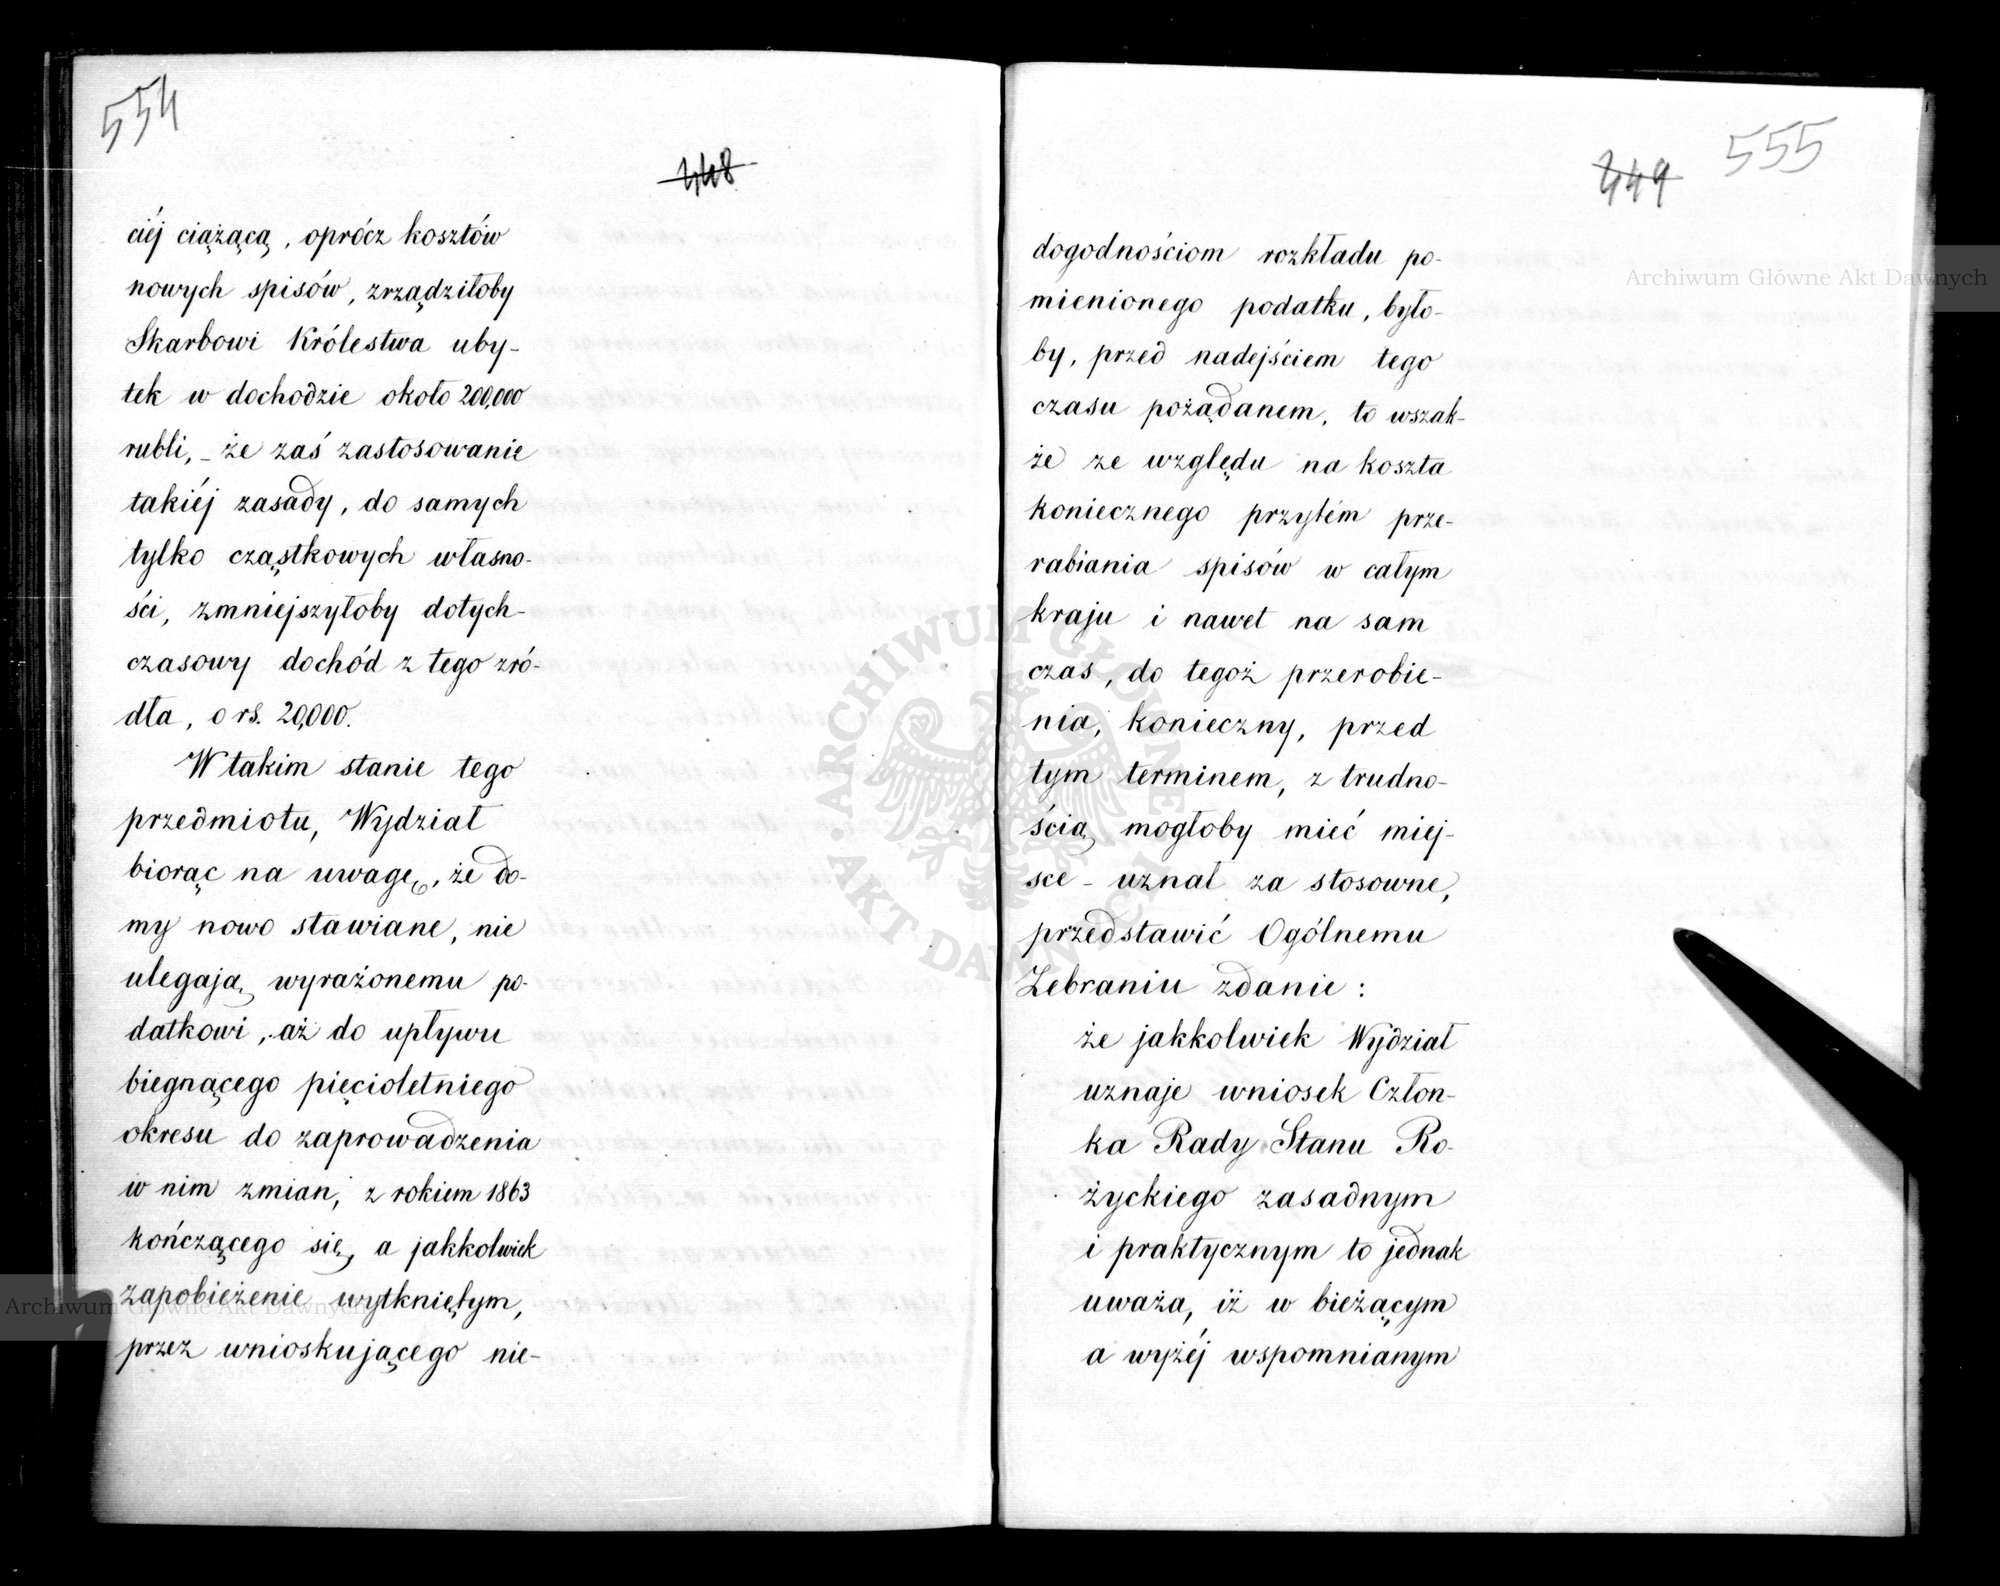 554
448
ciéj ciążącą, oprócz kosztów
nowych spisów, zrządziłoby
Skarbowi Królestwa uby-
tek w dochodzie około 200,000
rubli, - że zaś zastosowanie
takiéj zasady, do samych
tylko cząstkowych własno-
ści, zmniejszyłoby dotych-
czasowy dochód z tego zró-
dła, o rs. 20,000.
W takim stanie tego
przedmiotu, Wydział
biorąc na uwagę, że do-
my nowo stawiane, nie
ulegają, wyrażonemu po-
datkowi, aż do upływu
biegnącego pięcioletniego
okresu do zaprowadzenia
w nim zmian, z rokiem 1863
kończącego się, a jakkolwiek
zapobieżenie wytkniętym,
przez wnioskującego nie-
555
449
dogodnościom rozkładu po-
mienionego podatku, było-
by, przed nadejściem tego
czasu pożądanem, to wszak-
że ze względu na koszta
koniecznego przytém prze-
rabiania spisów w całym
kraju i nawet na sam
czas, do tegoż przerobie-
nia, konieczny, przed
tym terminem, z trudno-
ścią mogłoby mieć miej-
sce - uznał za stosowne,
przedstawić Ogólnemu
Zebraniu zdanie:
że jakkolwiek Wydział
uznaje wniosek Człon-
ka Rady Stanu Ro-
życkiego zasadnym
i praktycznym to jednak
uważa, iż w bieżącym
a wyżéj wspomnianym
Archiwum Główne Akt Dawnych
Archiwum Główne Akt Dawnych
ARCHIWUM GŁÓWNE AKT DAWNYCH